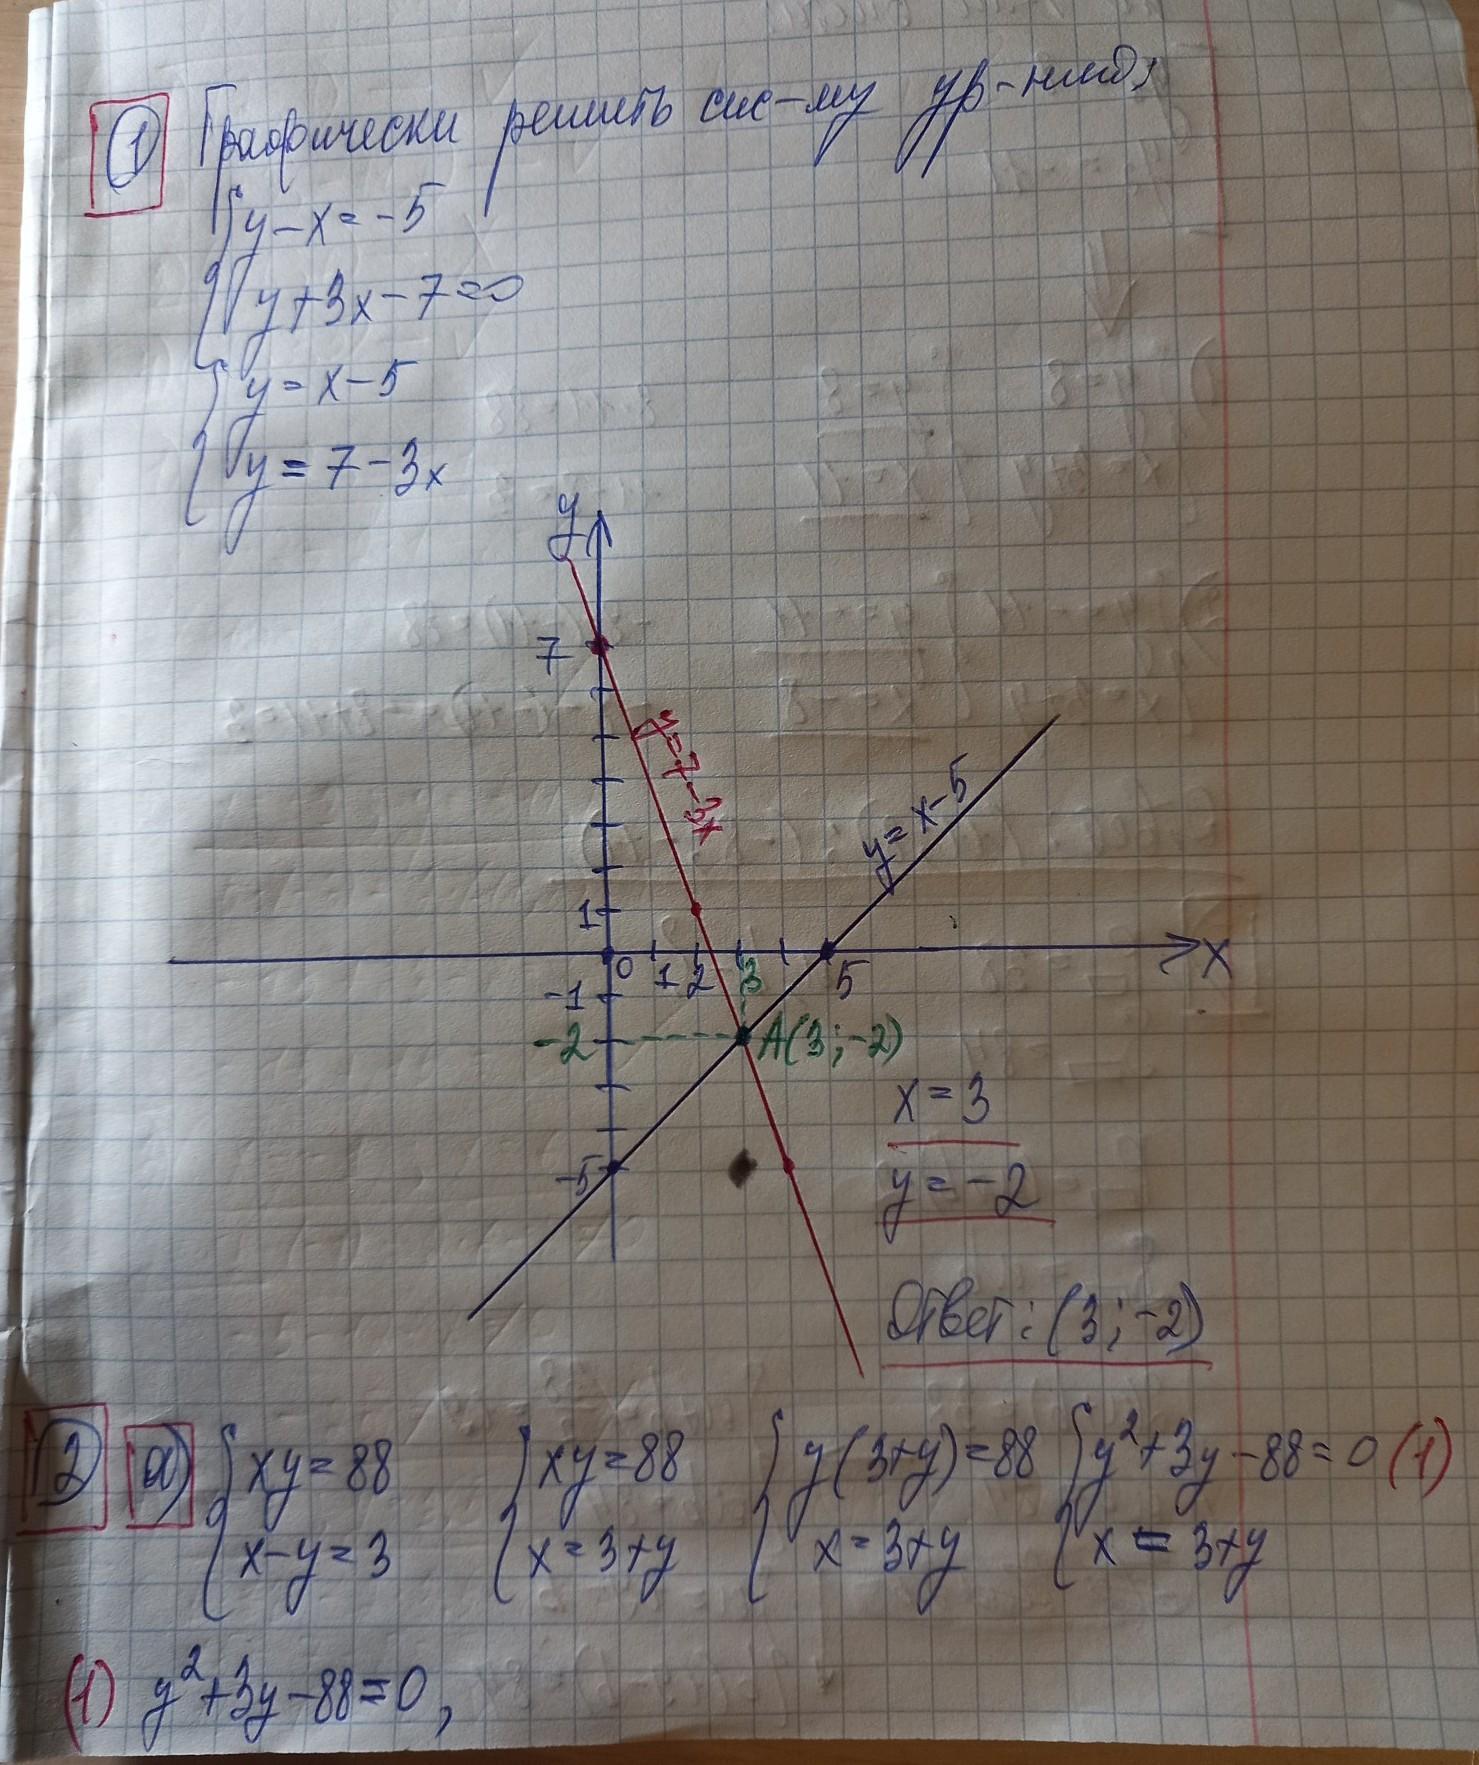 1 Графически решить сис-му ур-ний:
y-x=-5
y+3x-7=0
y=x-5
y=7-3x
y
7
y=7-3x
y=x-5
1
0 1 2 3 5 x
-1
-2 A(3;-2)
x=3
-5 y=-2
Ответ: (3;-2)
2 а) xy=88 xy=88 y(3+y)=88 y²+3y-88=0 (1)
x-y=3 x=3+y x=3+y x=3+y
(1) y²+3y-88=0,